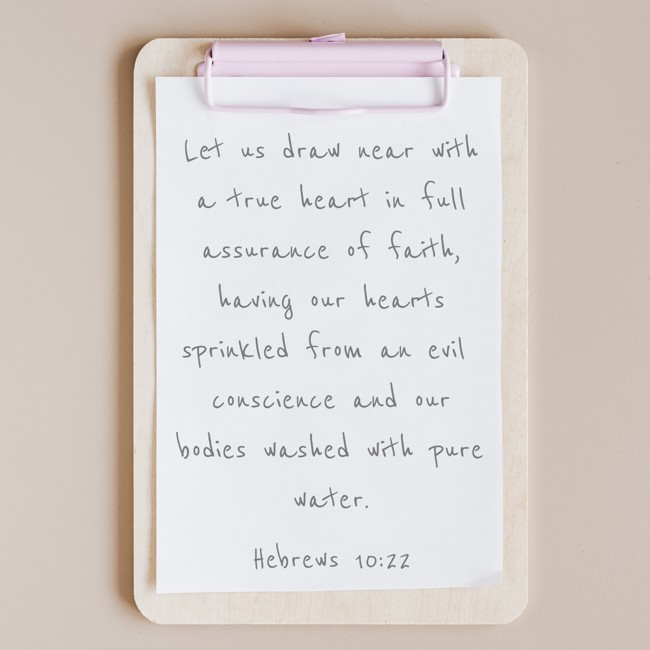 Let us draw near with
a true heart in full
assurance of faith,
having our hearts
sprinkled from an evil
conscience and our
bodies washed with pure
water.
Hebrews 10:22